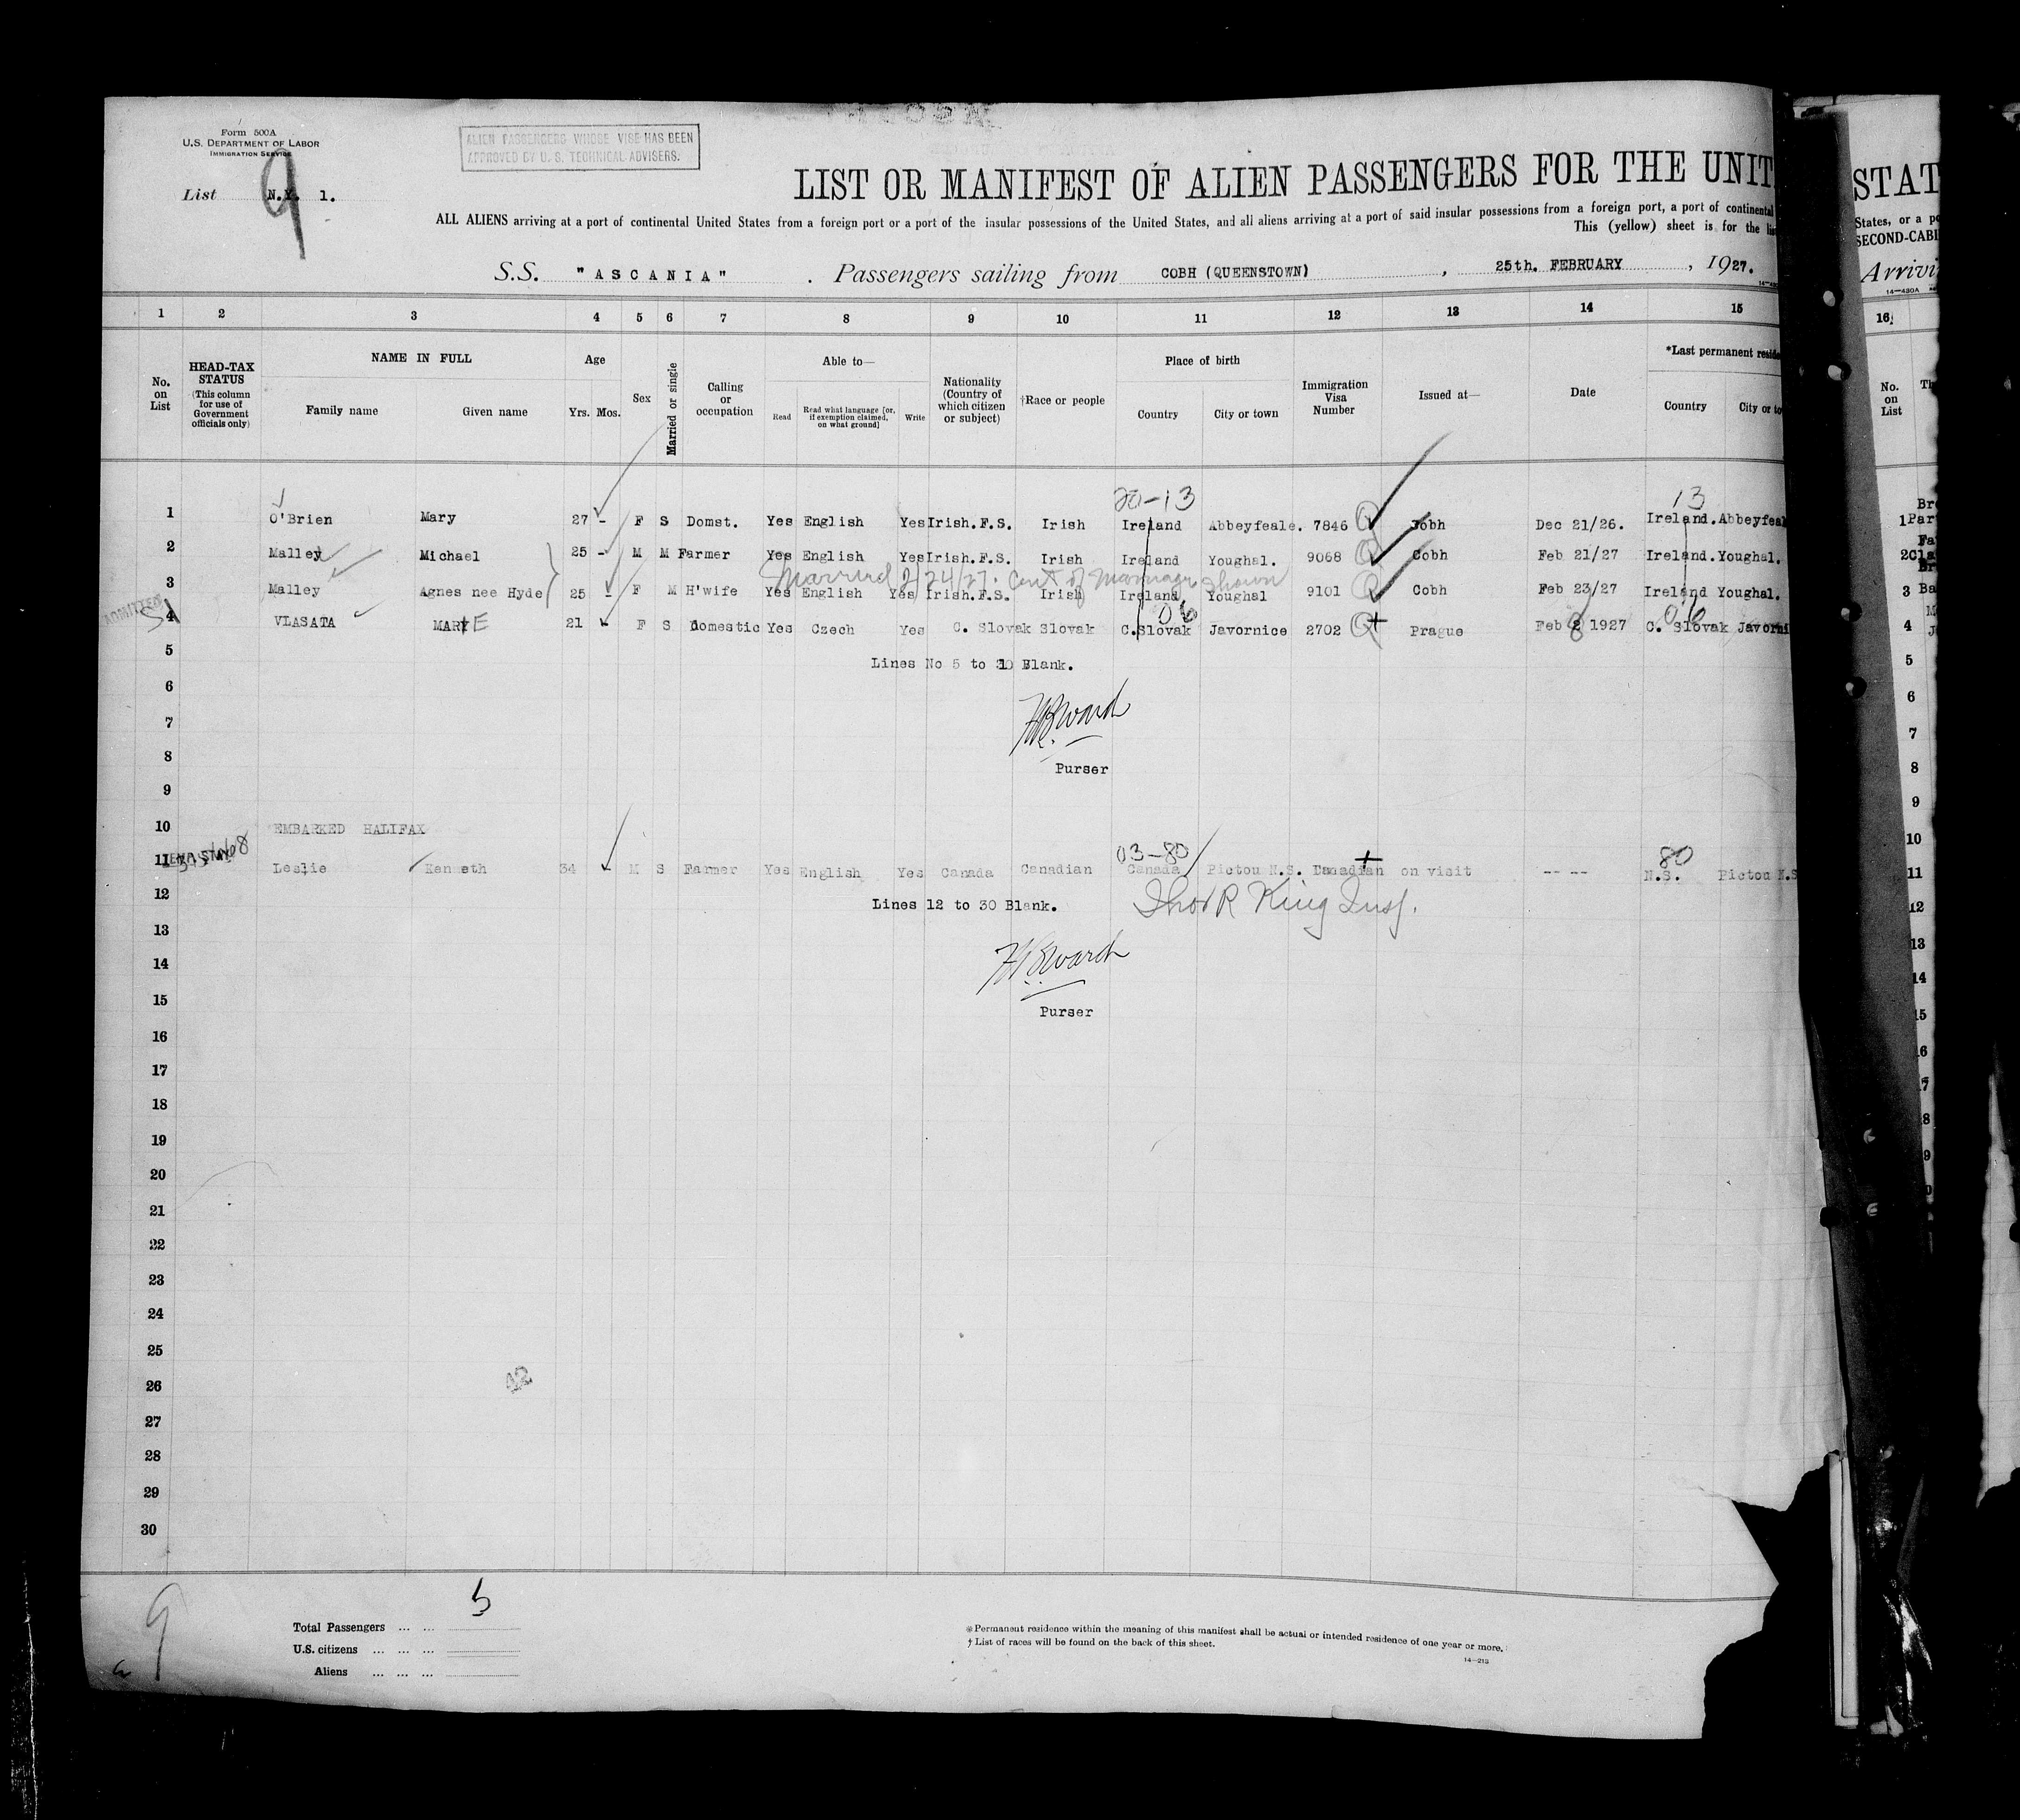 Form 500A
U.S. DEPARTMENT OF LABOR
IMMIGRATION SERVICE
ALIEN PASSENGERS WHOSE VISE HAS BEEN
APPROVED BY U. S. TECHNICAL ADVISERS.
List N.Y. 1.
9
LIST OR MANIFEST OF ALIEN PASSENGERS FOR THE UNIT
STAT
ALL ALIENS arriving at a port of continental United States from a foreign port or a port of the insular possessions of the United States, and all aliens arriving at a port of said insular possessions from a foreign port, a port of continental
States, or a
This (yellow) sheet is for the
SECOND-CABI
S.S. "ASCANIA" . Passengers sailing from COBH (QUEENSTOWN) , 25th. FEBRUARY , 1927.
Arrivi
14-430A
1 2 3 4 5 6 7 8 9 10 11 12 13 14 15 16
No. on List
HEAD-TAX STATUS (This column for use of Government officials only)
NAME IN FULL
Family name Given name
Age
Yrs. Mos.
Sex
Married or single
Calling or occupation
Able to—
Read Read what language [or, if exemption claimed, on what ground] Write
Nationality (Country of which citizen or subject)
†Race or people
Place of birth
Country City or town
Immigration Visa Number
Issued at—
Date
*Last permanent resid
Country City or to
No. on List
20-13 13
1 O'Brien Mary 27 - F S Domst. Yes English Yes Irish.F.S. Irish Ireland Abbeyfeale. 7846 Q Cobh Dec 21/26. Ireland. Abbeyfeal 1
2 Malley Michael 25 - M M Farmer Yes English Yes Irish.F.S. Irish Ireland Youghal. 9068 Q Cobh Feb 21/27 Ireland. Youghal. 2
Married 2/24/27. Cert of Marriage Shown
3 Malley Agnes nee Hyde 25 - F M H'wife Yes English Yes Irish.F.S. Irish Ireland Youghal 9101 Q Cobh Feb 23/27 Ireland Youghal. 3 Ba
ADMITTED
06 06
4 VLASATA MARIE 21 - F S Domestic Yes Czech Yes C. Slovak Slovak C.Slovak Javornice 2702 Q Prague Feb 8 1927 C. Slovak Javorni 4
5 Lines No 5 to 10 Blank. 5
6 6
7 7
Purser
8 8
9 9
10 EMBARKED HALIFAX 10
03-80 80
11 Leslie Kenneth 34 M S Farmer Yes English Yes Canada Canadian Canada Pictou N.S. Canadian on visit -- -- N.S. Pictou N.S 11
12 Lines 12 to 30 Blank. 12
King Insp.
13 13
14 14
15 Purser 15
16
17
18
19
20
21
22
23
24
25
26
27
28
29
30
5
9
Total Passengers ... ...
U.S. citizens ... ... ...
Aliens ... ... ...
*Permanent residence within the meaning of this manifest shall be actual or intended residence of one year or more.
† List of races will be found on the back of this sheet.
14-213